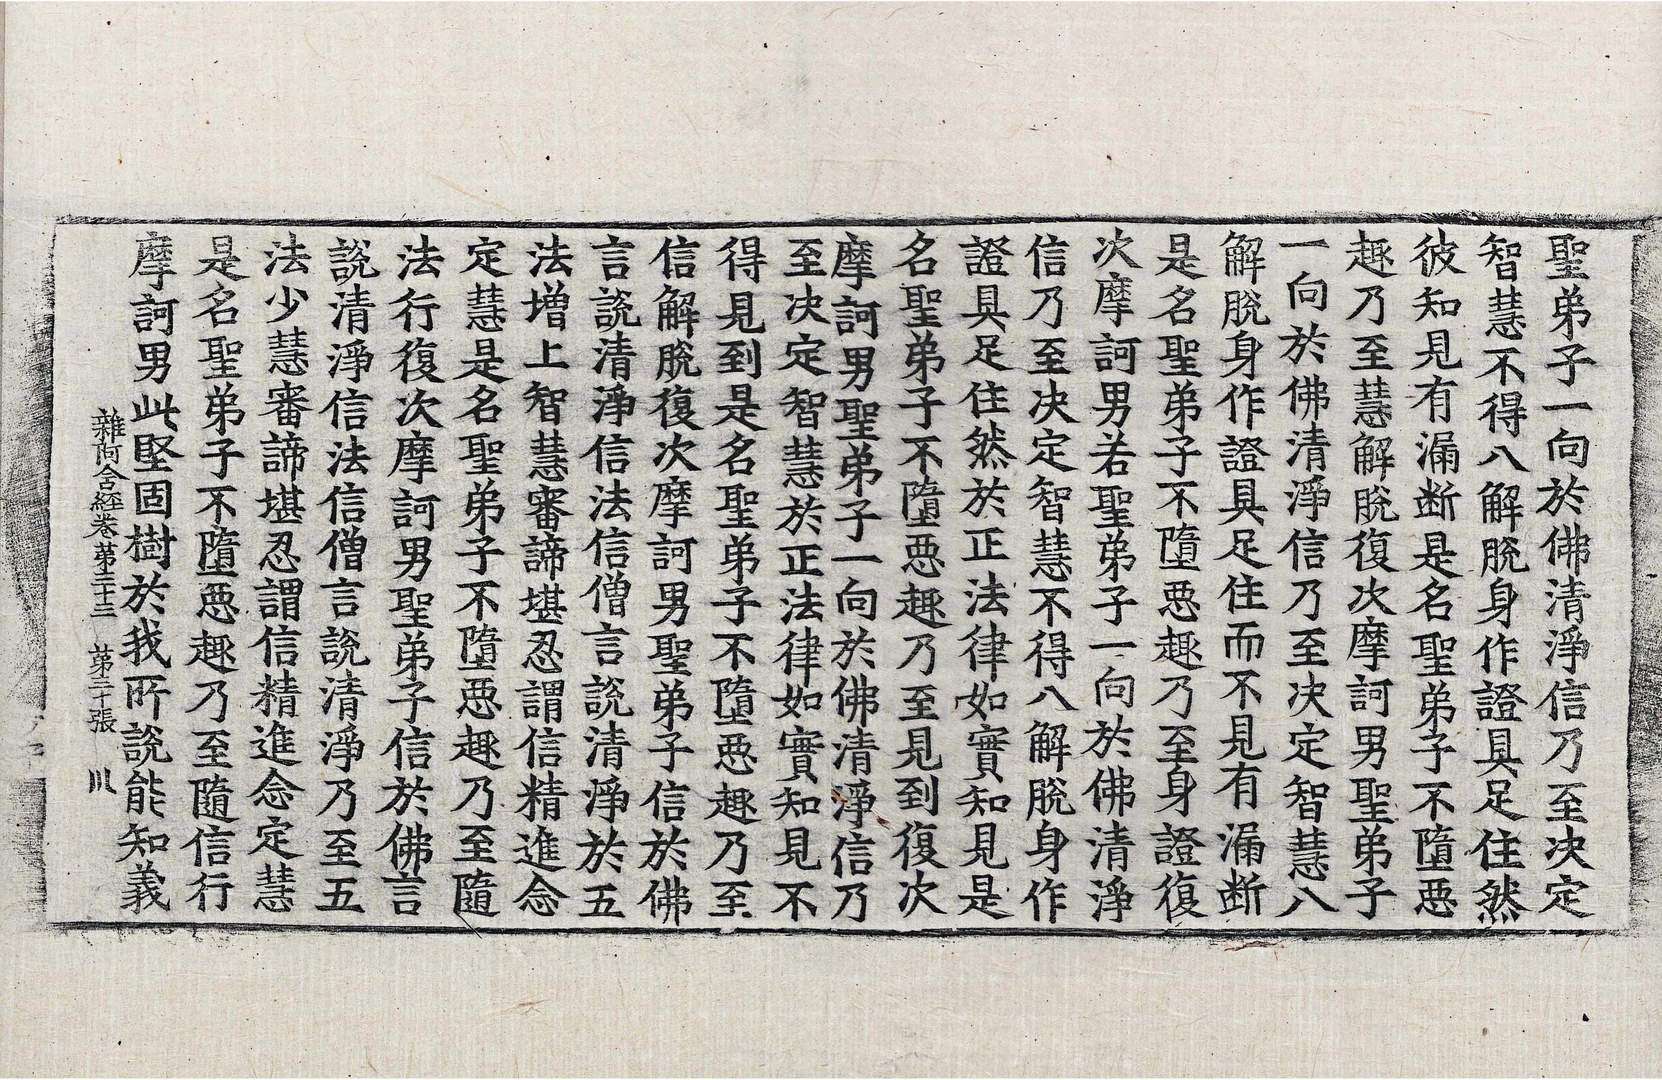 聖弟子一向於佛清淨信乃至決定
智慧不得八解脫身作證具足住然
彼知見有漏断是名聖弟子不墮惡
趣乃至慧解脫復次摩訶男聖弟子
一向於佛清淨信乃至決定智慧八
解脫身作證具足住而不見有漏断
是名聖弟子不墮惡趣乃至身證復
次摩訶男若聖弟子一向於佛清淨
信乃至決定智慧不得八解脫身作
證具足住然於正法律如實知見是
名聖弟子不墮惡趣乃至見到復次
摩訶男聖弟子一向於佛清淨信乃
至決定智慧於正法律如實知見不
得見到是名聖弟子不墮惡趣乃至
信解脫復次摩訶男聖弟子信於佛
言說清淨信法信僧言說清淨於五
法增上智慧審諦堪忍謂信精進念
定慧是名聖弟子不墮惡趣乃至隨
法行復次摩訶男聖弟子信於佛言
說清淨信法信僧言說清淨乃至五
法少慧審諦堪忍謂信精進念定慧
是名聖弟子不墮惡趣乃至隨信行
摩訶男此堅固樹於我所說能知義
雜阿含經卷第三十三 第二十張 㞥